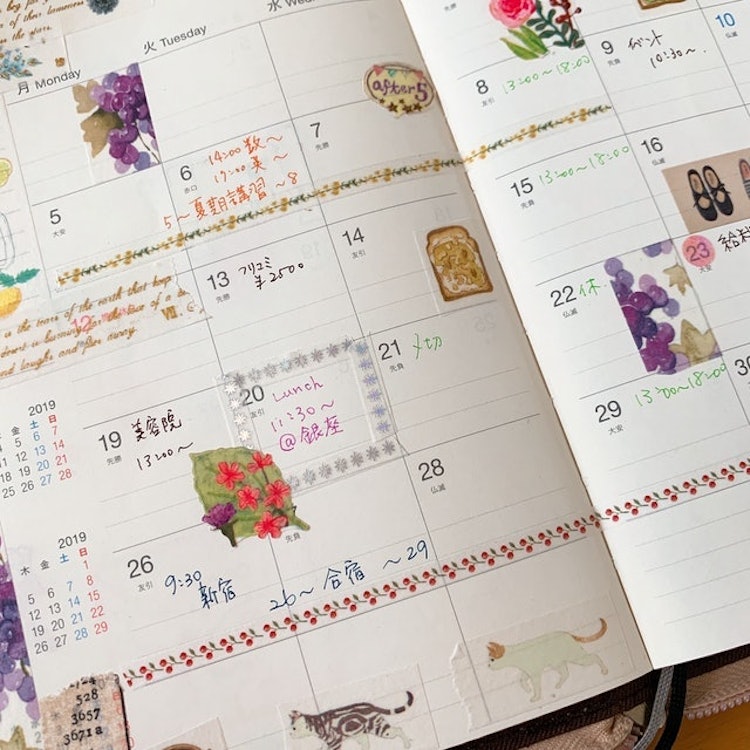 月 Monday
火 Tuesday
水
after5
5
大安
6
赤口
14:00 数〜
17:00 英〜
5〜夏期講習〜8
7
先勝
8
友引
13:00〜18:00
9
先負
イベント
10:30〜
10
仏滅
is the tears of the earth that keep
12
13
先勝
フリュミ
¥2500
14
友引
15
先負
13:00〜18:00
16
仏滅
19
先勝
美容院
13:00〜
20
友引
Lunch
11:30〜
@銀座
21
先負
〆切
22
仏滅
休
23
大安
26
友引
9:30
新宿
先負
26〜合宿〜29
28
仏滅
29
大安
13:00〜18:00
30
2019
金 土 日
4 5 6 7
11 12 13 14
18 19 20 21
25 26 27 28
2019
木 金 土 日
1
5 6 7 8
12 13 14 15
19 20 21 22
26 27 28 29
528
3657
3671a